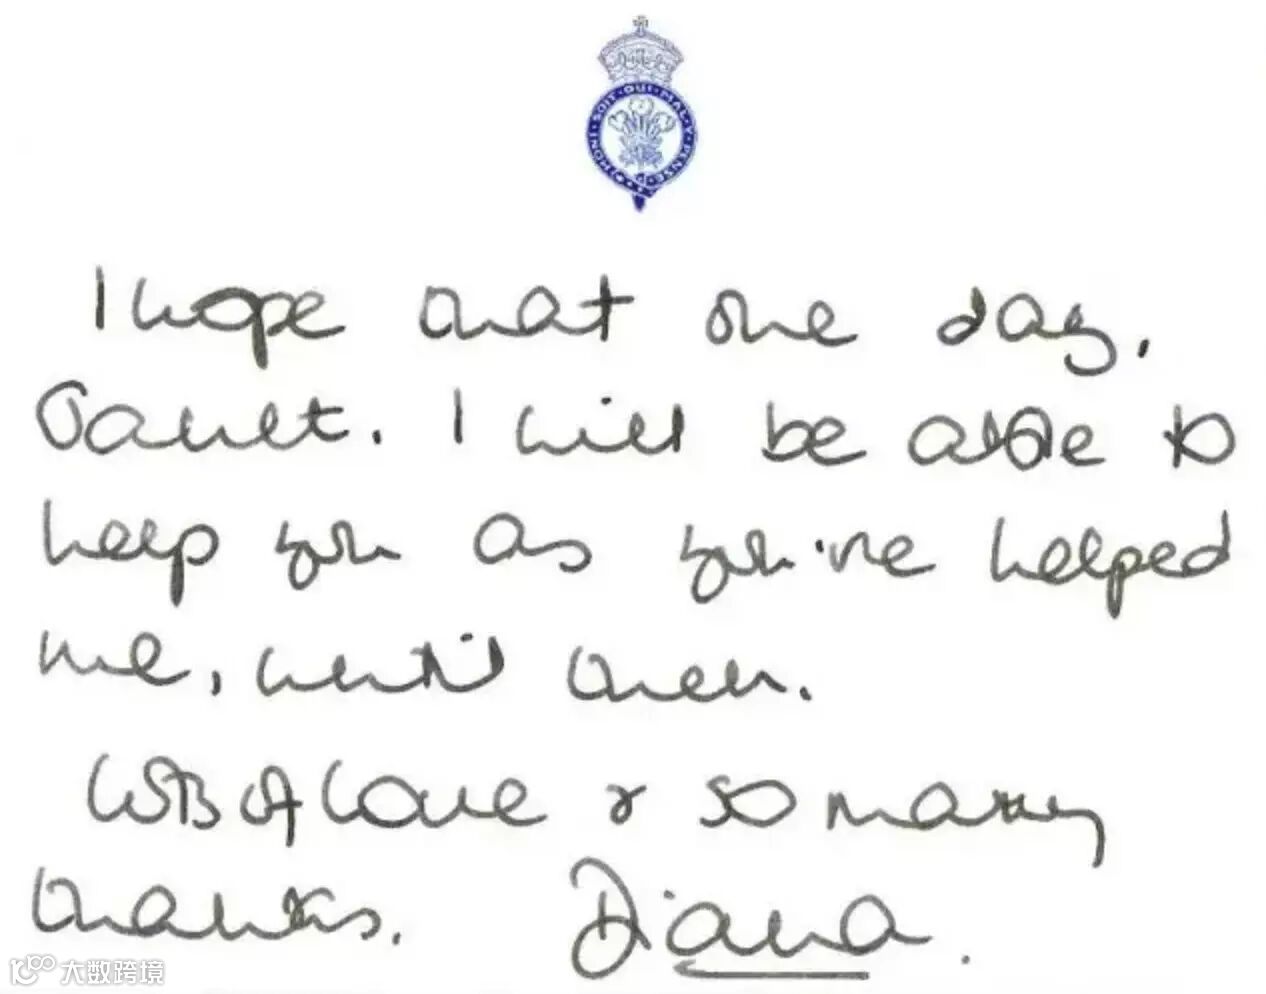 HONI·SOIT·QUI·MAL·Y·PENSE
I hope that one day,
Paul. I will be able to
help you as you've helped
me, until then.
Lots of love & so many
thanks. Diana.
大数跨境